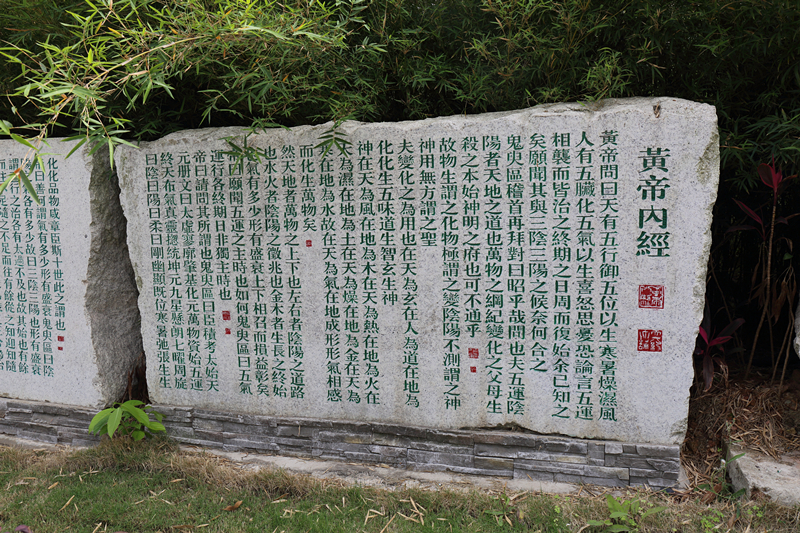 黃帝內經
黃帝問曰天有五行御五位以生寒暑燥濕風
人有五臟化五氣以生喜怒思憂恐論言五運
相襲而皆治之終期之日周而復始余已知之
矣願聞其與三陰三陽之候奈何合之
鬼臾區稽首再拜對曰昭乎哉問也夫五運陰
陽者天地之道也萬物之綱紀變化之父母生
殺之本始神明之府也可不通乎
故物生謂之化物極謂之變陰陽不測謂之神
神用無方謂之聖
夫變化之為用也在天為玄在人為道在地為
化化生五味道生智玄生神
神在天為風在地為木在天為熱在地為火在
天為濕在地為土在天為燥在地為金在天為
在地為水故在天為氣在地成形形氣相感
而化生萬物矣
然天地者萬物之上下也左右者陰陽之道路
也水火者陰陽之徵兆也金木者生長之終始
氣有多少形有盛衰上下相召而損益彰矣
曰願聞五運之主時也如何鬼臾區曰五氣
運行各終期日非獨主時也
帝曰請問其所謂也鬼臾區曰臣積考太始天
元册文曰太虛寥廓肇基化元萬物資始五運
終天布氣真靈揔統坤元九星懸朗七曜周旋
曰陰曰陽曰柔曰剛幽顯既位寒暑弛張生生
化化品物咸章臣斯十世此之謂也
曰善何謂氣有多少形有盛衰鬼臾區曰陰
氣各有多少故曰三陰三陽也形有盛衰
謂五行之治各有太過不及也故其始也有餘
而往不足隨之不足而往有餘從之知迎知隨